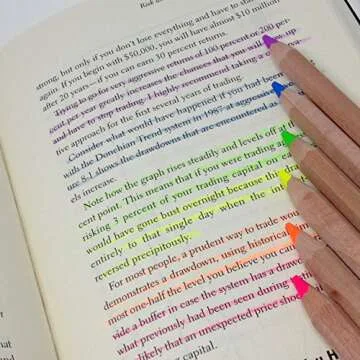 Risk
strong, but only if you don't lose everything and have to sta
again. If you begin with $50,000, you will have almost $10 million
after 20 years—if you can earn 30 percent returns.
Trying to go for very aggressive returns of 100 percent or 200 per-
cent per year greatly increases the chances that you will blow up
and have to stop trading. I highly recommend taking a
tive approach for the first several years of trading.
Consider what would have happened if you had been
with the Donchian Trend system in 1987 at aggressive
8-1 shows the drawdowns that are encountered as
els increase.
Note how the graph rises steadily and levels off at the
cent point. This means that if you were trading
risking 3 percent of your trading capital on
would have gone bust overnight because
entirely to that single day when the
reversed precipitously.
For most people, a prudent way to trade
demonstrates a drawdown, using historical
most one-half the level you believe you can
vide a buffer in case the system has a
what previously had been seen during
likely that an unexpected price
capital.